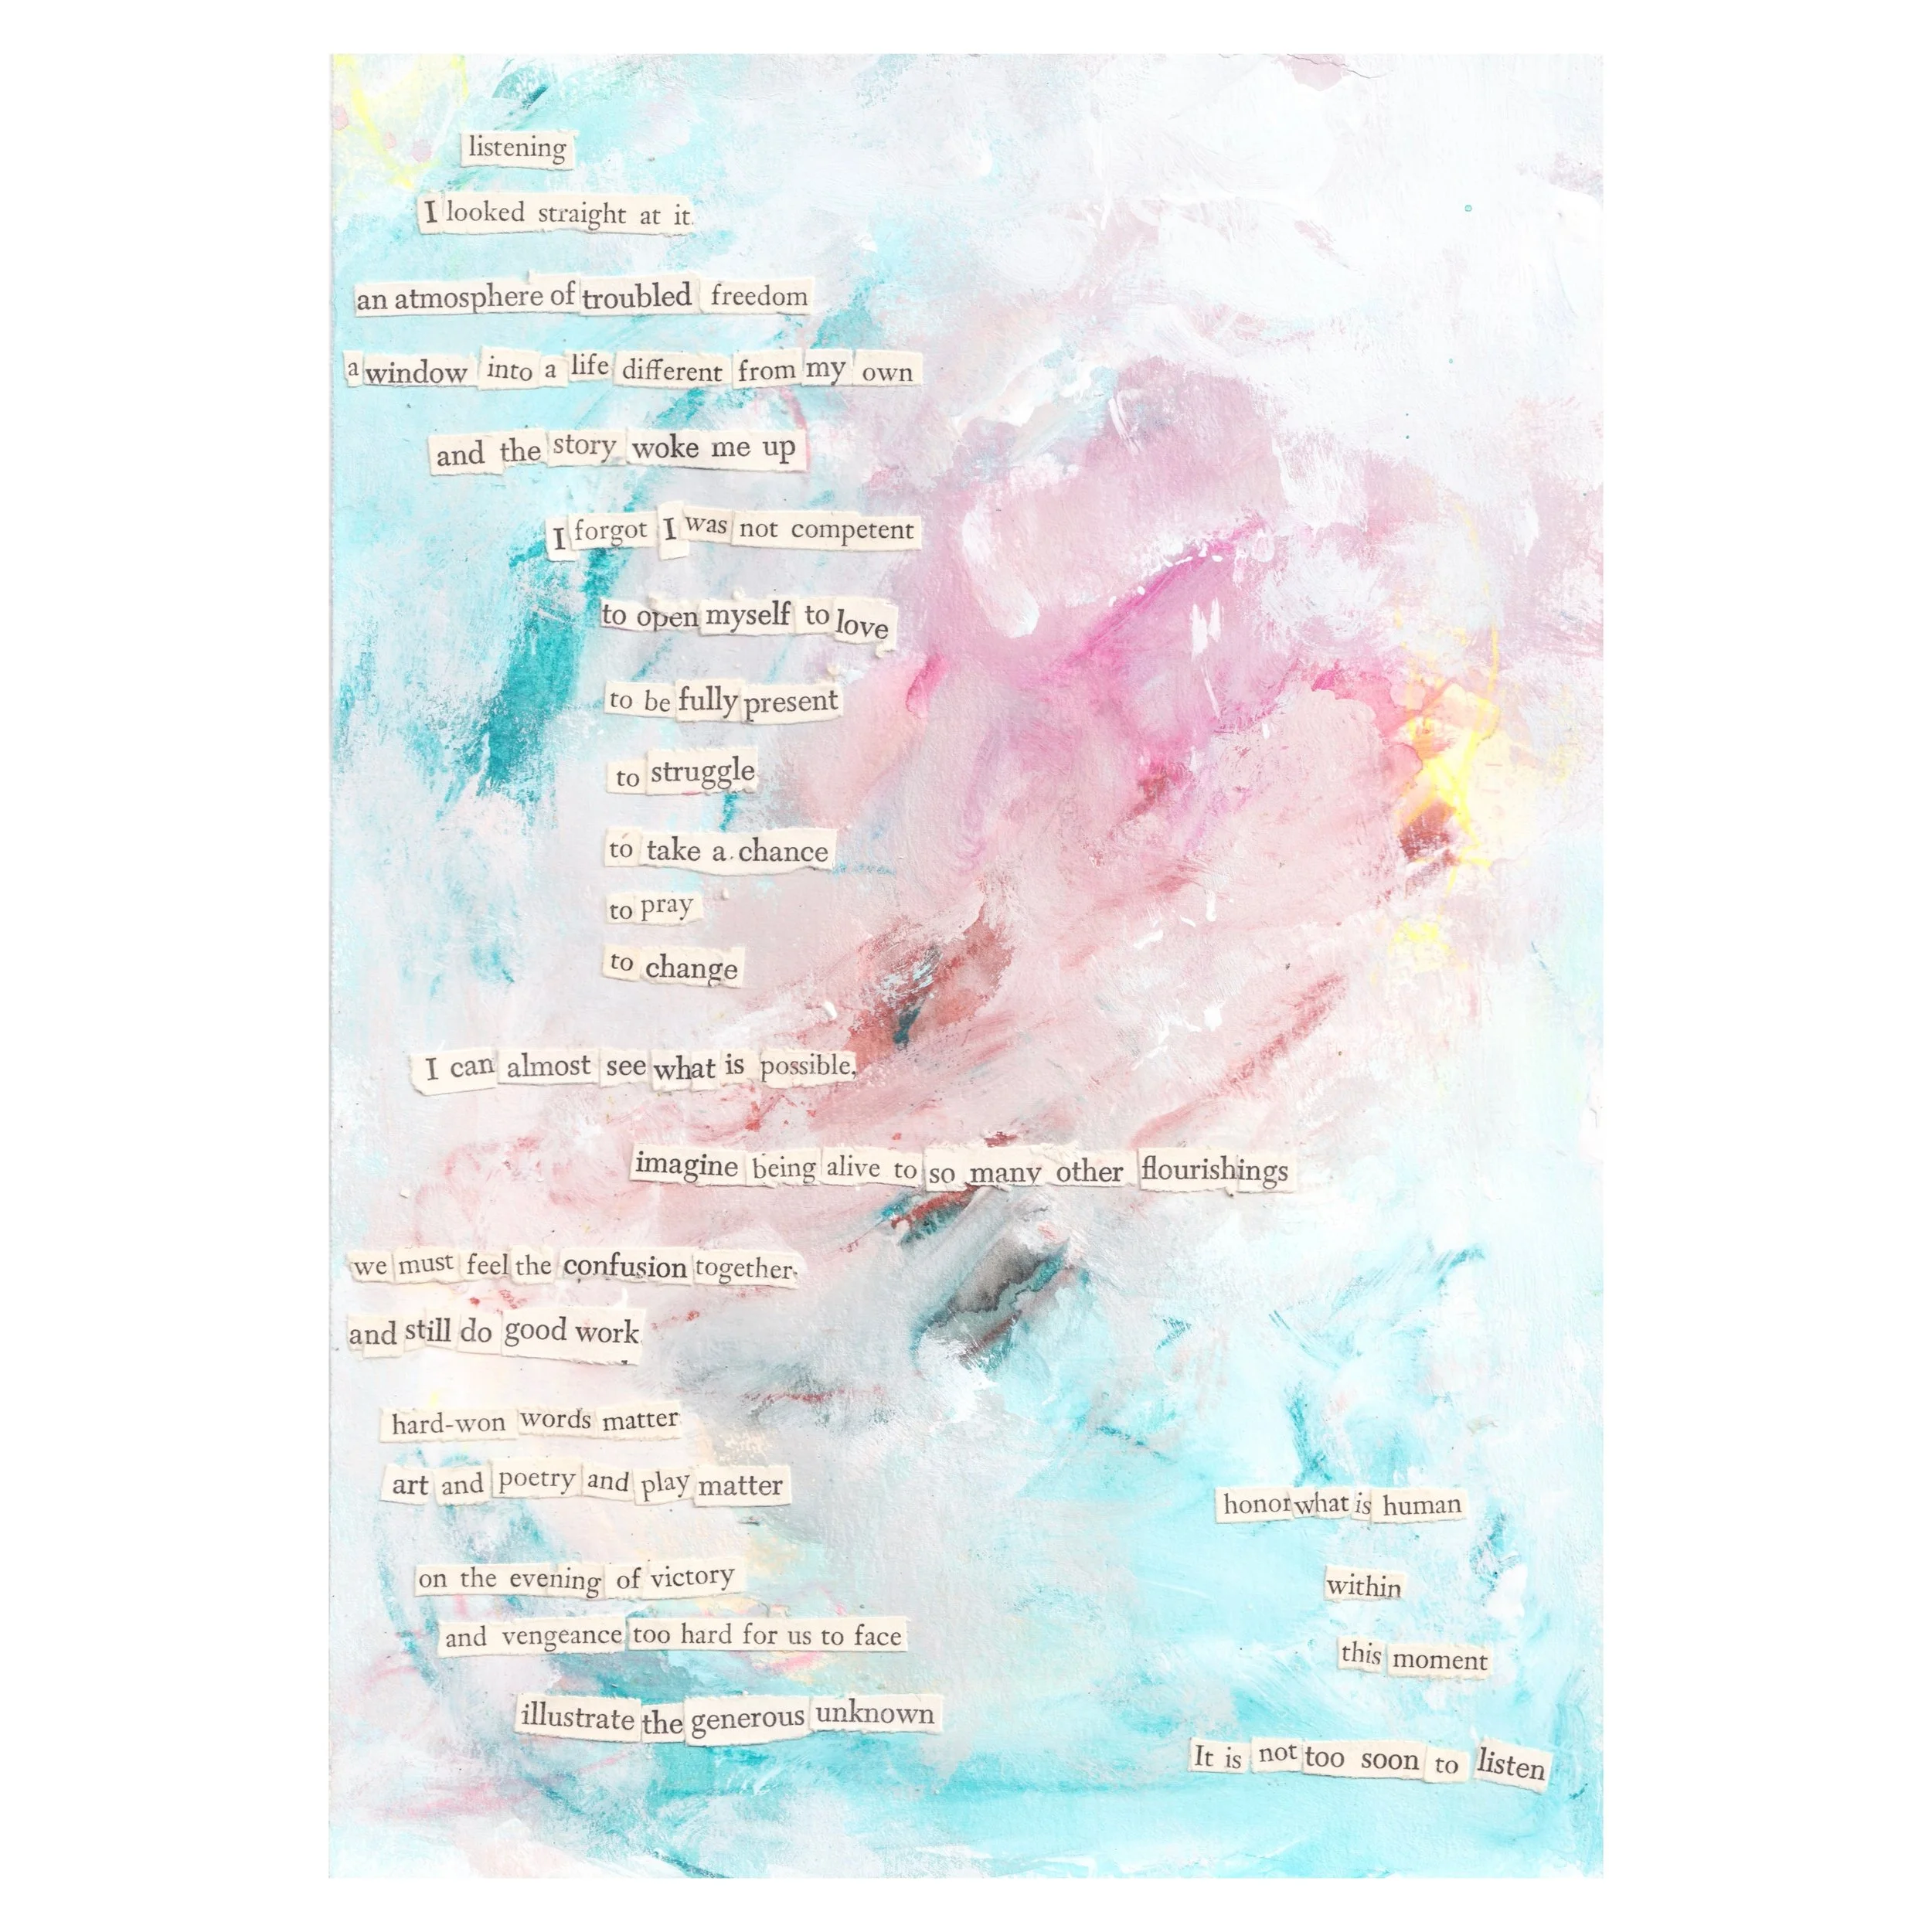 listening
I looked straight at it.
an atmosphere of troubled freedom
a window into a life different from my own
and the story woke me up
I forgot I was not competent
to open myself to love
to be fully present
to struggle
to take a chance
to pray
to change
I can almost see what is possible,
imagine being alive to so many other flourishings
we must feel the confusion together
and still do good work
hard-won words matter
art and poetry and play matter
on the evening of victory
and vengeance too hard for us to face
illustrate the generous unknown
honor what is human
within
this moment
It is not too soon to listen